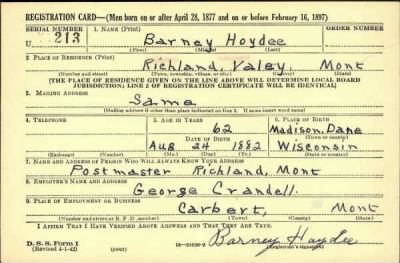 REGISTRATION CARD—(Men born on or after April 28, 1877 and on or before February 16, 1897)
SERIAL NUMBER
1. NAME (Print)
ORDER NUMBER
U 213
Barney Hoydee
(First) (Middle) (Last)
2. PLACE OF RESIDENCE (Print)
Richland, Valey, Mont
(Number and street) (Town, township, village, or city) (County) (State)
[THE PLACE OF RESIDENCE GIVEN ON THE LINE ABOVE WILL DETERMINE LOCAL BOARD
JURISDICTION; LINE 2 OF REGISTRATION CERTIFICATE WILL BE IDENTICAL]
3. MAILING ADDRESS
Same
(Mailing address if other than place indicated on line 2. If same insert word same)
4. TELEPHONE
5. AGE IN YEARS
6. PLACE OF BIRTH
62
Madison, Dane
DATE OF BIRTH
(Town or county)
Aug 24 1882
Wisconsin
(Exchange) (Number) (Mo.) (Day) (Yr.) (State or country)
7. NAME AND ADDRESS OF PERSON WHO WILL ALWAYS KNOW YOUR ADDRESS
Postmaster Richland, Mont
8. EMPLOYER'S NAME AND ADDRESS
George Crandell.
9. PLACE OF EMPLOYMENT OR BUSINESS
Carbert, Mont
(Number and street or R. F. D. number) (Town) (County) (State)
I AFFIRM THAT I HAVE VERIFIED ABOVE ANSWERS AND THAT THEY ARE TRUE.
D. S. S. Form 1
(Revised 4-1-42) (over)
Barney Hoydee
(Registrant's signature)